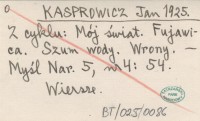 KASPROWICZ Jan 1925.
Z cyklu: Mój świat. Fujawi-
ca. Szum wody. Wrony. —
Myśl Nar. 5, nr 4: 54.
Wiersze.
BT/025/0086